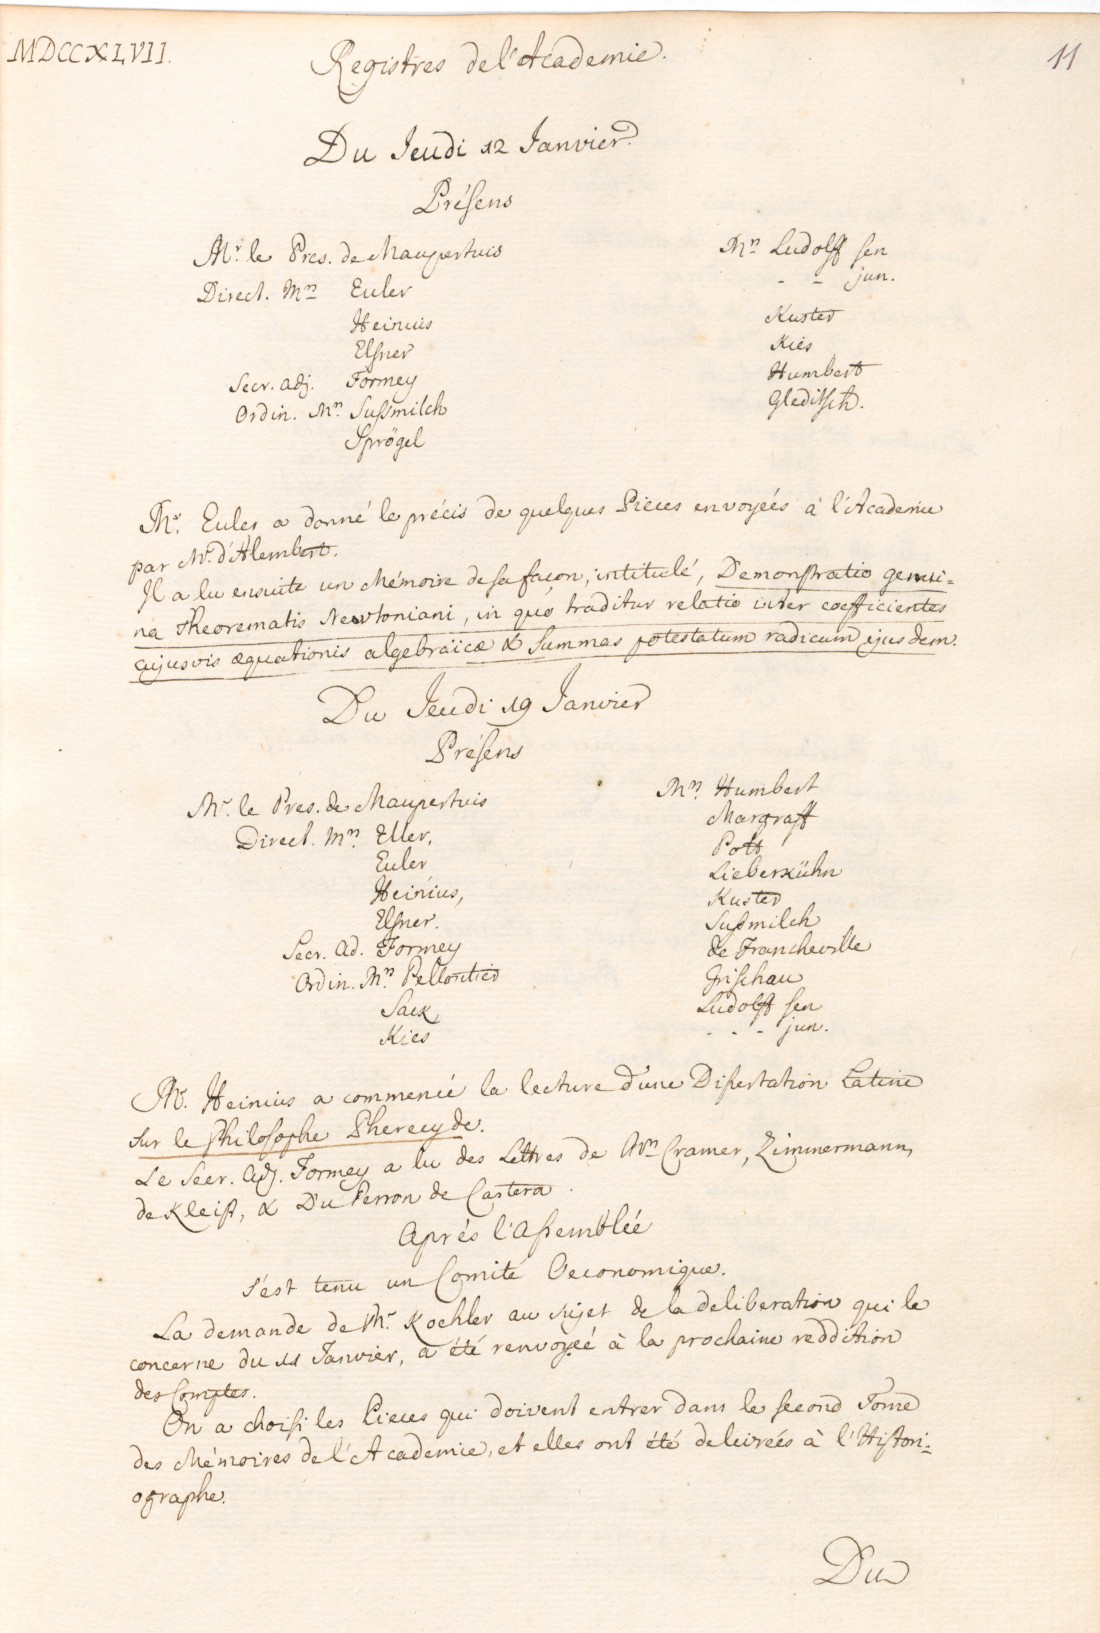 MDCCXLVII.
Registres de l'Academie.
11
Du Jeudi 12 Janvier.
Présens
Mr. le Pres. de Maupertuis
Direct. Mrs Euler
Heinius
Elsner
Secr. adj. Formey
Ordin. Mrs. Sussmilch
Sprögel
Mrs Ludolff sen
- - jun.
Kuster
Kies
Humbert
Gleditsch.
Mr. Euler a donné le précis de quelques Pieces envoyées à l'Academie
par Mr. d'Alembert.
Il a lu ensuite un Mémoire de sa façon, intitulé, Demonstratio genui=
na Theorematis Newtoniani, in quo traditur relatio inter coefficientes
cujusvis æquationis algebraïcæ & summas potestatum radicum ejusdem.
Du Jeudi 19 Janvier
Présens
Mr. le Pres. de Maupertuis
Direct. Mrs Eller,
Euler
Heinius,
Elsner.
Secr. ad. Formey
Ordin. Mrs. Pelloutier
Sack,
Kies
Mrs. Humbert
Margraff
Pott
Lieberkühn
Kuster
Sussmilch
de Francheville
Grischau
Ludolff sen
- - - jun.
Mr. Heinius a commencé la lecture d'une Dissertation Latine
sur le Philosophe Pherecyde.
Le Secr. Adj. Formey a lu des Lettres de Mrs Cramer, Zimmermann,
de Kleist, & Du Perron de Castera.
Aprés l'Assemblée
s'est tenu un Comité Oeconomique.
La demande de Mr. Koehler au sujet de la deliberation qui le
concerne du 11 Janvier, a été renvoyée à la prochaine reddition
des Comptes.
On a choisi les Pieces qui doivent entrer dans le second Tome
des Mémoires de l'Academie, et elles ont été delivrées à l'Histori=
ographe.
Du